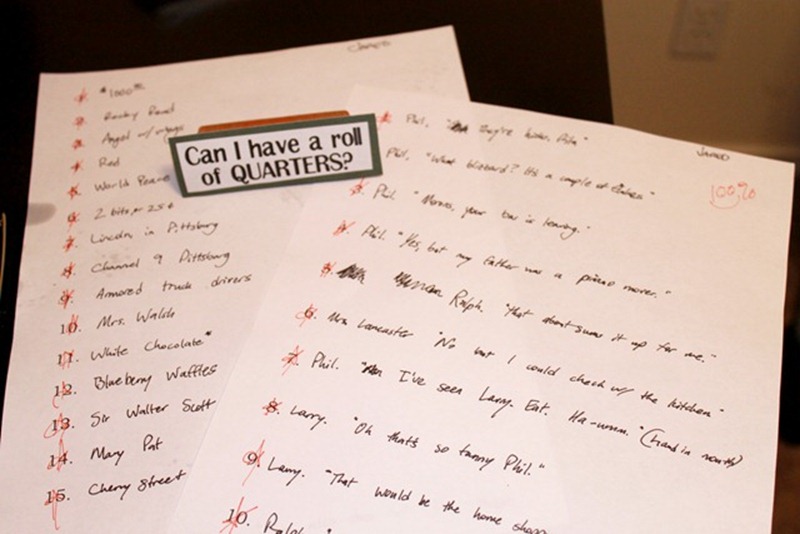 JARED
1. $1000.00
2. Rocky Road
3. Angel w/
4. Red
5. World Peace
6. 2 bits, or 25¢
7. Lincoln in Pittsburg
8. Channel 9 Pittsburg
9. Armored truck drivers
10. Mrs. Walsh
11. White Chocolate*
12. Blueberry Waffles
13. Sir Walter Scott
14. Mary Pat
15. Cherry Street
Can I have a roll
of QUARTERS?
JARED
100%
Phil, "They're hicks, Rita"
Phil, "What blizzard? It's a couple of flakes"
3. Phil. "Morons, your bus is leaving."
4. Phil. "Yes, but my father was a piano mover."
5. Ralph. "That about sums it up for me."
6. Mrs Lancaster "No but I could check w/ the kitchen"
7. Phil. "I've seen Larry. Eat. Ha-umm." (hand in mouth)
8. Larry. "Oh that's so funny Phil."
9. Larry. "That would be the home shopp
10. Ralph "